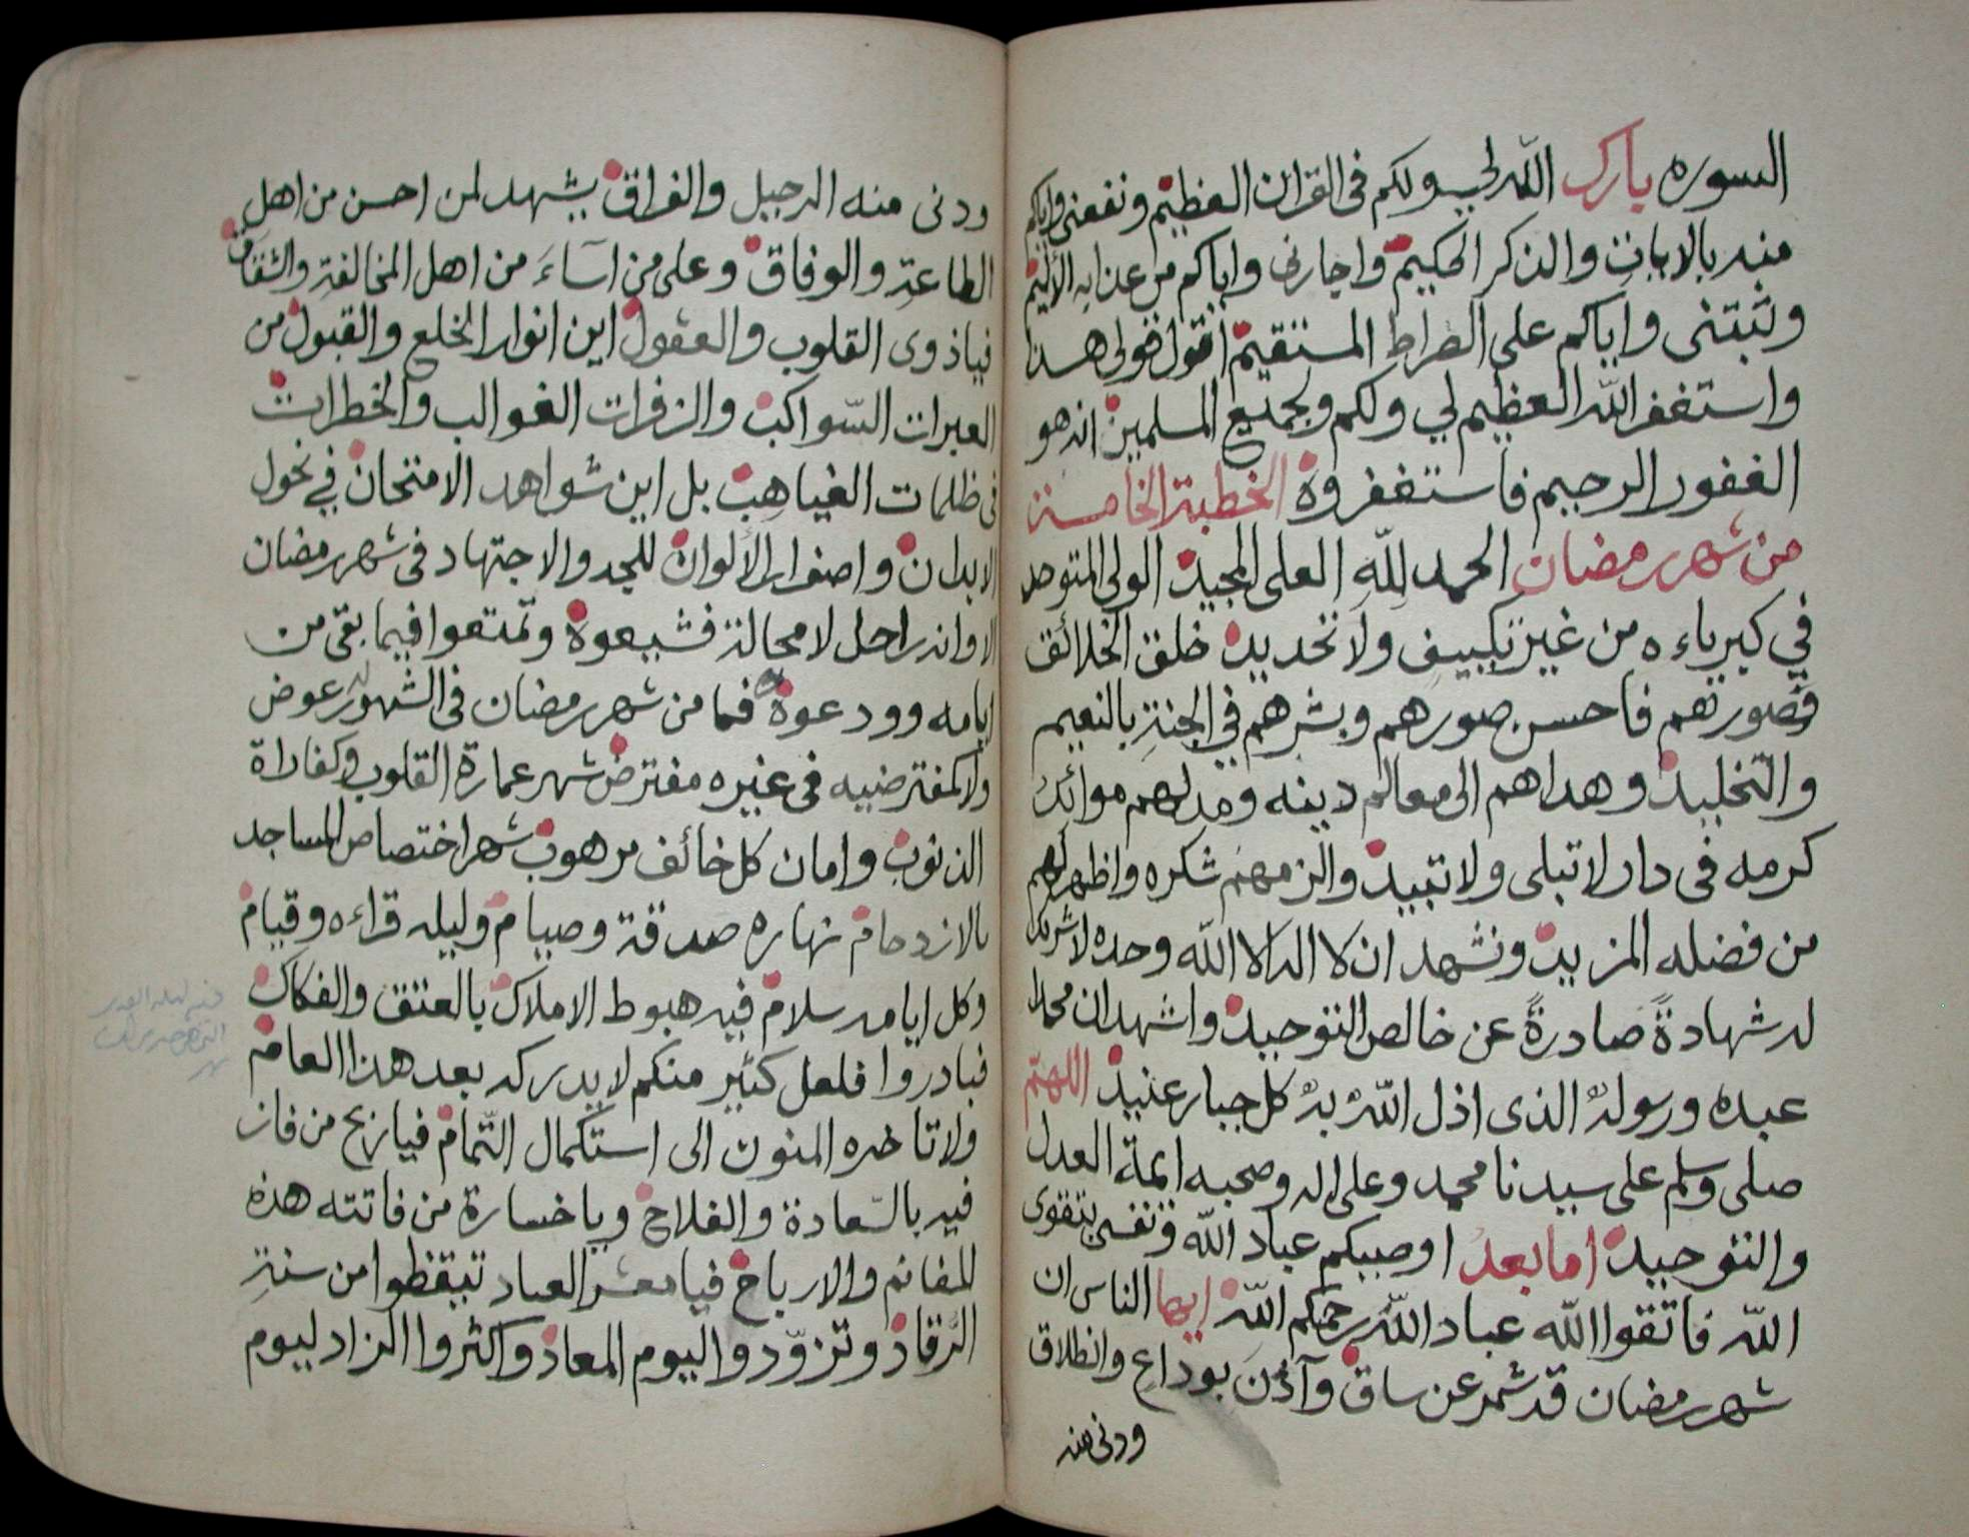 السوره بارك الله لي ولكم في القران العظيم ونفعني واياكم
منه بالايات والذكر الحكيم واجارني واياكم من عذابه الأليم
وثبتني واياكم على الصراط المستقيم اقول قولي هذا
واستغفر الله العظيم لي ولكم ولجميع المسلمين انه هو
الغفور الرحيم فاستغفروه الخطبة الخامسة
من شهر رمضان الحمد لله العلى المجيد الولى المتوحد
في كبرياءه من غير تكييف ولا تحديد خلق الخلائق
فصورهم فاحسن صورهم وبشرهم في الجنة بالنعيم
والتخليد وهداهم الى معالم دينه ومد لهم موائد
كرمه في دار لا تبلى ولا تبيد والزمهم شكره واظهر لهم
من فضله المزيد ونشهد ان لا اله الا الله وحده لا شريك
له شهادةً صادرةً عن خالص التوحيد واشهد ان محمدا
عبده ورسولهُ الذى اذل اللهُ بهُ كل جبار عنيد اللهم
صلى وسلم على سيدنا محمد وعلى اله وصحبه ايمة العدل
والتوحيد اما بعدُ اوصيكم عباد الله ونفسى بتقوى
الله فاتقوا الله عباد الله رحمكم الله ايها الناس ان
شهر رمضان قد شمر عن ساق وآذن بوداع وانطلاق
ودنى منه
ودنى منه الرحيل والفراق يشهد لمن احسن من اهل
الطاعة والوفاق وعلى من آساءَ من اهل المخالفة والشقاق
فياذوى القلوب والعقول اين انوار الخلع والقبول من
العبرات السّواكب والزفرات الغوالب والخطرات
في ظلمات الغياهب بل اين شواهد الامتحان في نحول
الابدان واصفرار الألوان للجد والاجتهاد في شهر رمضان
الا وانه راحل لا محالة فشيعوه وتمتعوا فيما بقى من
ايامه وودعوه فما من شهر رمضان في الشهور عوض
ولا كمفترضيه في غيره مفترض شهر عمارة القلوب وكفارة
الذنوب وامان كل خائف مرهوب شهر اختصاص المساجد
بالازدحام نهاره صدقة وصيام وليله قراءه وقيام
وكل ايامه سلام فيه هبوط الاملاك بالعتق والفكاك
فبادروا فلعل كثير منكم لا يدركه بعد هذا العام
ولا تاخره المنون الى استكمال التّمام فيا ربح من فاز
فيه بالسّعادة والفلاح ويا خسارة من فاتته هذه
المغانم والارباح فيا معشر العباد تيقظوا من سنة
الرّقاد وتزوّدوا اليوم المعاد واكثروا الزاد ليوم